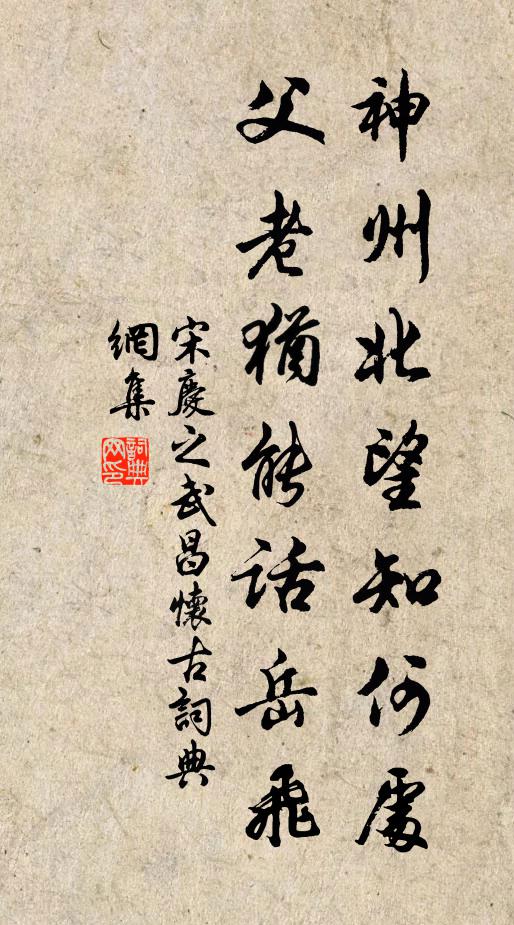 神州北望知何處
父老猶能話岳飛
宋慶之武昌懷古詞典
網集
詞典
网印